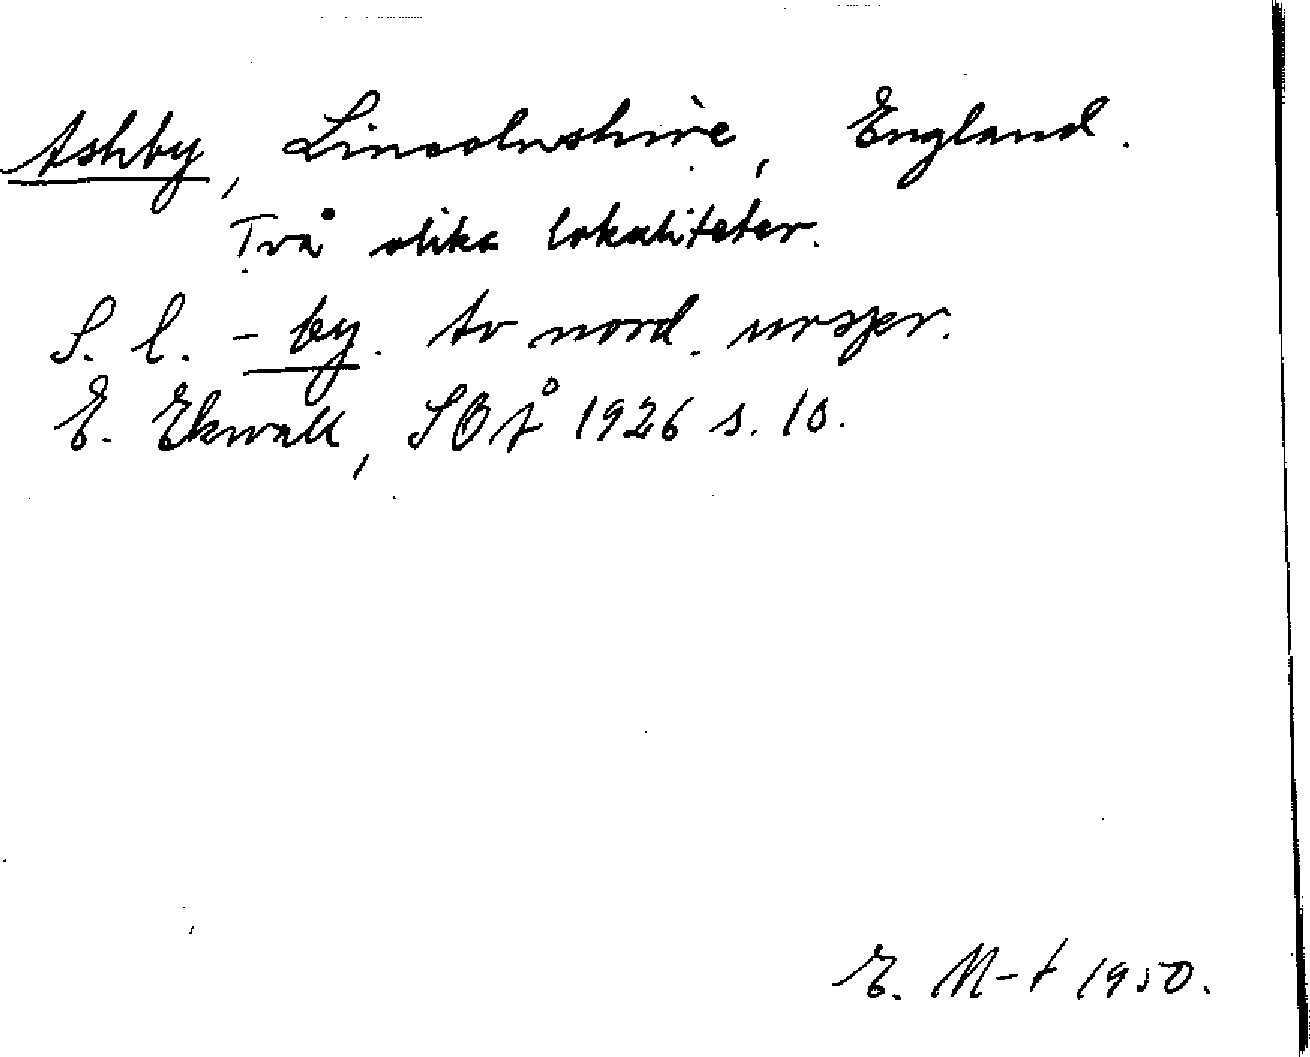 Ashby, Lincolnshire, England.
Två olika lokaliteter.
S. l. -by. Av nord. urspr.
E. Ekwall, SOÅ 1926 s. 10.
E. M-t 1950.